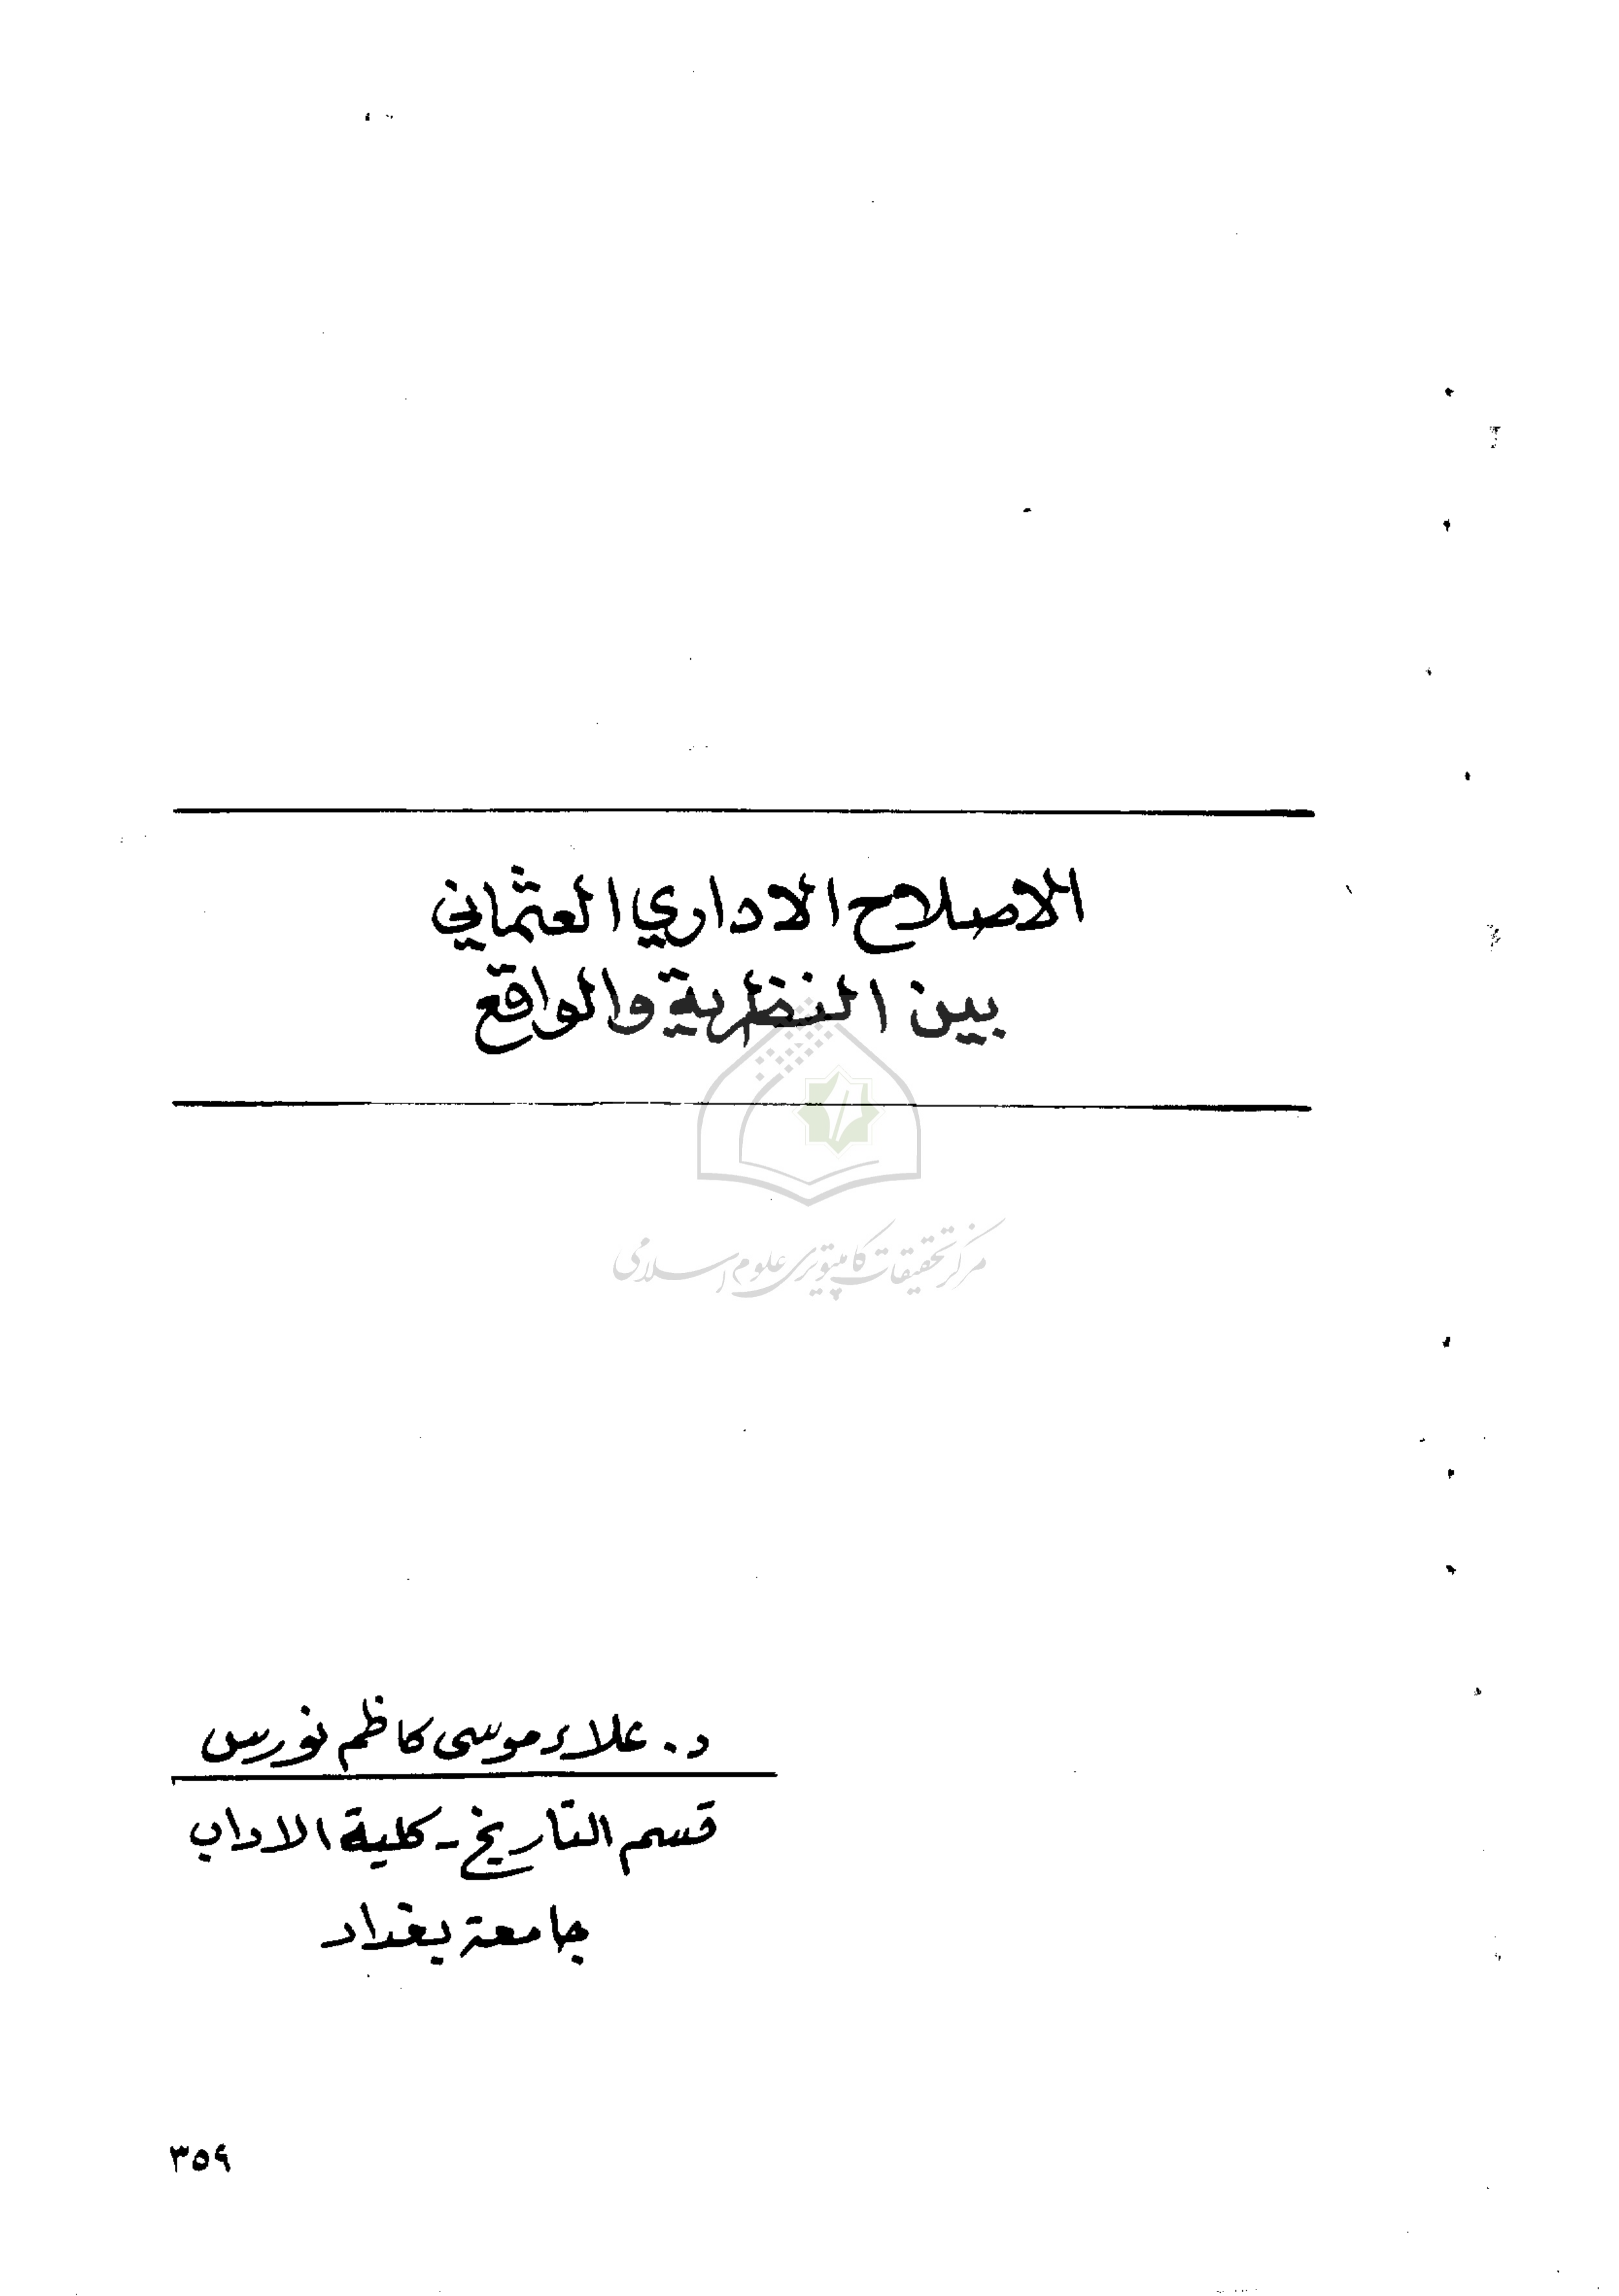 الاصلاح الاداري العثماني
بين النظرية والواقع
مركز تحقيقات كامپيوتری علوم اسلامی
د. علاء موسى كاظم نورس
قسم التاريخ - كلية الاداب
جامعة بغداد
٣٥٩